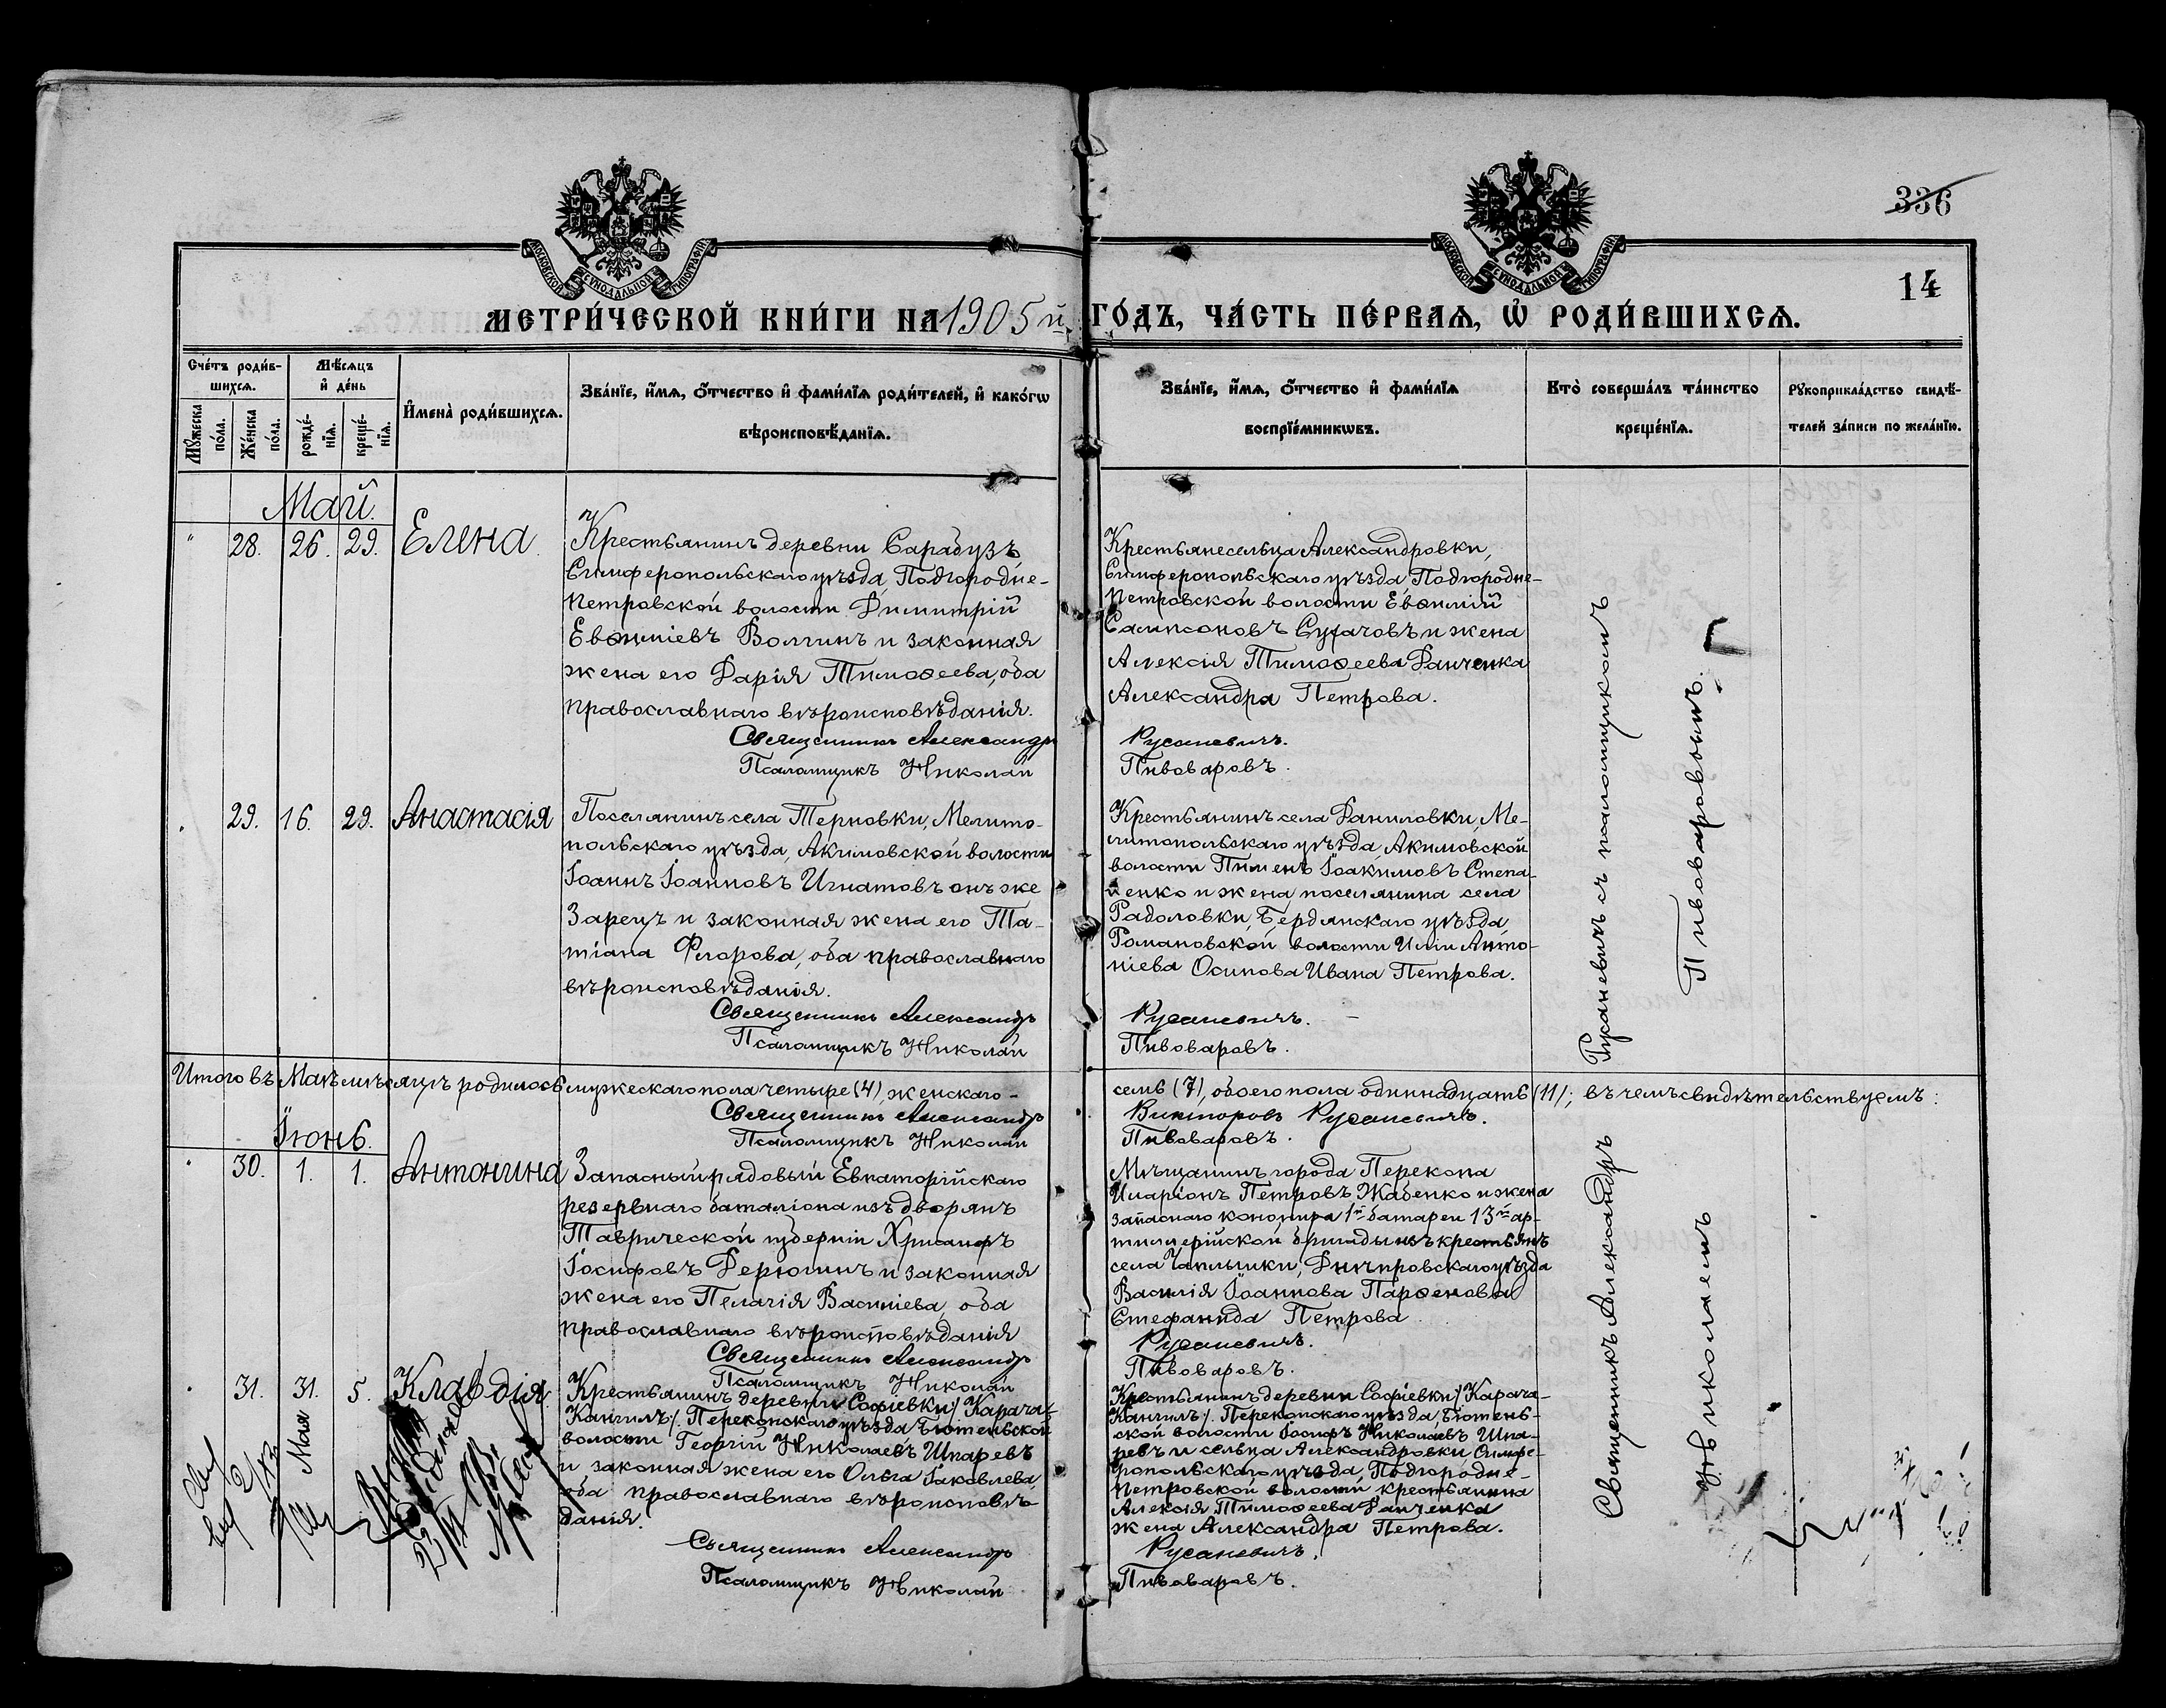 336
14
МОСКОВСКОЙ СѴНОДАЛЬНОЙ ТИПОГРАФІИ
МОСКОВСКОЙ СѴНОДАЛЬНОЙ ТИПОГРАФІИ
МЕТРИ́ЧЕСКОЙ КНИ́ГИ НА 1905й
ГО́ДЪ, ЧА́СТЬ ПЕ́РВАѦ, Ѽ РОДИ́ВШИХСѦ.
Сче́тъ роди́в-
шихсѧ.
Мѣ́сѧцъ
и҆ де́нь
Мꙋ́жеска по́ла.
Же́нска по́ла.
рожде́-
нїѧ.
креще́-
нїѧ.
И҆мена̀ роди́вшихсѧ.
Зва́нїе, и҆́мѧ, ѻ҆́тчество и҆ фами́лїѧ роди́телей, и҆ како́гѡ
вѣроисповѣ́данїѧ.
Зва́нїе, и҆́мѧ, ѻ҆́тчество и҆ фами́лїѧ
воспрїе́мникѡвъ.
Кто̀ соверша́лъ та́инство
креще́нїѧ.
Рꙋкоприкла́дство свидѣ́-
телей за́писи по жела́нїю.
Май.
" 28. 26. 29. Елена.
Крестьянинъ деревни Сарабузъ
Симферопольскаго уѣзда, Подгородне-
Петровской волости Димитрій
Евѳиміевъ Волгинъ и законная
жена его Дарія Тимоѳеева, оба
православнаго вѣроисповѣданія.
Священникъ Александръ
Псаломщикъ Николай
Крестьяне сельца Александровки,
Симферопольскаго уѣзда Подгородне-
Петровской волости Евѳимій
Сампсоновъ Сугачовъ и жена
Алексія Тимоѳеева Данченка
Александра Петрова.
Русаневичъ.
Пивоваровъ.
29. 16. 29. Анастасія
Поселянинъ села Терновки, Мелито-
польскаго уѣзда, Акимовской волости
Іоаннъ Іоанновъ Игнатовъ онъ же
Зарецъ и законная жена его Та-
тіана Флорова, оба православнаго
вѣроисповѣданія.
Священникъ Александръ
Псаломщикъ Николай
Крестьянинъ села Даниловки, Ме-
литопольскаго уѣзда, Акимовской
волости Пименъ Іоакимовъ Степа-
ненко и жена поселянина села
Радоловки, Бердянскаго уѣзда,
Романовской волости Иліи Анто-
ніева Осипова Ивана Петрова.
Русаневичъ.
Пивоваровъ.
Русаневичъ съ псаломщикомъ
Пивоваровымъ.
Итого въ Маѣ мѣсяцѣ родилось мужескаго пола четыре (4), женскаго -
семь (7), обоего пола одиннадцать (11); въ чемъ свидѣтельствуемъ:
Священникъ Александръ
Викторовъ Русаневичъ.
Псаломщикъ Николай
Пивоваровъ.
Іюнь.
30. 1. 1. Антонина
Запасный рядовый Евпаторійскаго
резервнаго баталіона изъ дворянъ
Таврической губерніи Хрисанфъ
Іосифовъ Дерюгинъ и законная
жена его Пелагія Василіева, оба
православнаго вѣроисповѣданія
Священникъ Александръ
Псаломщикъ Николай
Мѣщанинъ города Перекопа
Иларіонъ Петровъ Жабенко и жена
запаснаго канонира 1й батареи 13й ар-
тиллерійской бригады изъ крестьянъ
села Чаплынки, Днѣпровскаго уѣзда
Василія Іоаннова Парѳенова
Стефанида Петрова.
Русаневичъ.
Пивоваровъ.
31. 31. Мая 5. Клавдія
Крестьянинъ деревни Софіевки /Карача-
Кангилъ/. Перекопскаго уѣзда, Бютеньской
волости Георгій Николаевъ Шпаревъ
и законная жена его Ольга Іаковлева,
оба православнаго вѣроисповѣ-
данія.
Священникъ Александръ
Псаломщикъ Николай
Крестьянинъ деревни Софіевки /Карача-
Кангилъ/. Перекопскаго уѣзда, Бютень-
ской волости Іосифъ Николаевъ Шпа-
ревъ и сельца Александровки, Симфе-
ропольскаго уѣзда, Подгородне-
Петровской волости крестьянина
Алексія Тимоѳеева Данченка
жена Александра Петрова.
Русаневичъ.
Пивоваровъ.
Священникъ Александръ
Николаемъ